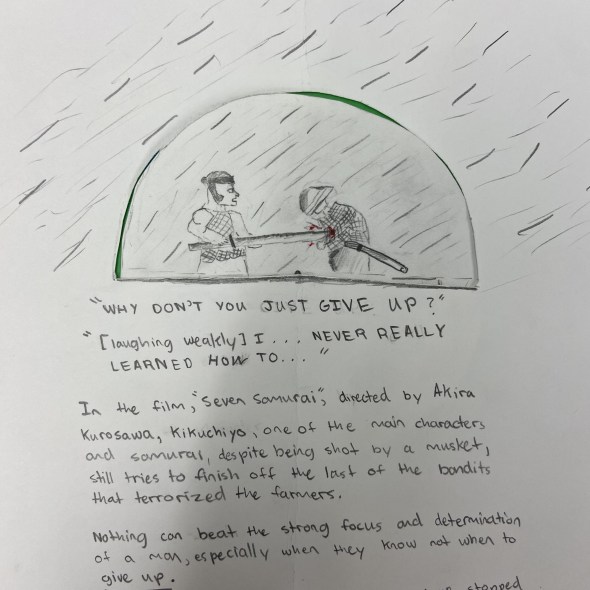 "WHY DON'T YOU JUST GIVE UP?"
"[laughing weakly] I... NEVER REALLY
LEARNED HOW TO..."
In the film, "Seven Samurai", directed by Akira
Kurosawa, Kikuchiyo, one of the main characters
and samurai, despite being shot by a musket,
still tries to finish off the last of the bandits
that terrorized the farmers.
Nothing can beat the strong focus and determination
of a man, especially when they know not when to
give up.
stopped